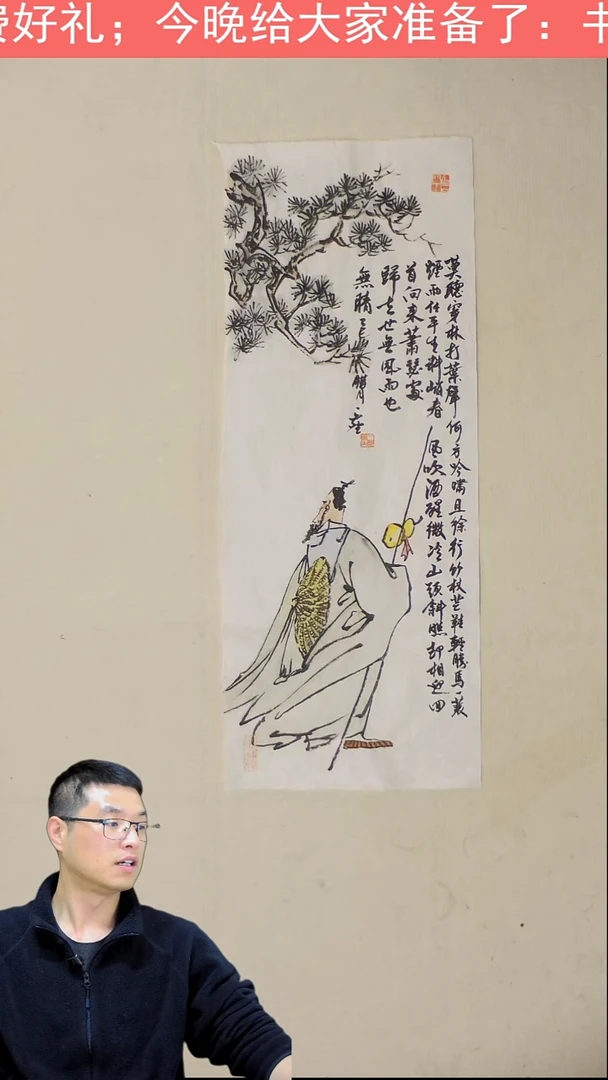 费好礼；今晚给大家准备了：书
莫聽穿林打葉聲何妨吟嘯且徐行竹杖芒鞋輕勝馬一蓑
煙雨任平生料峭春風吹酒醒微冷山頭斜照却相迎回
首向来蕭瑟處
歸去也無風雨也
無晴